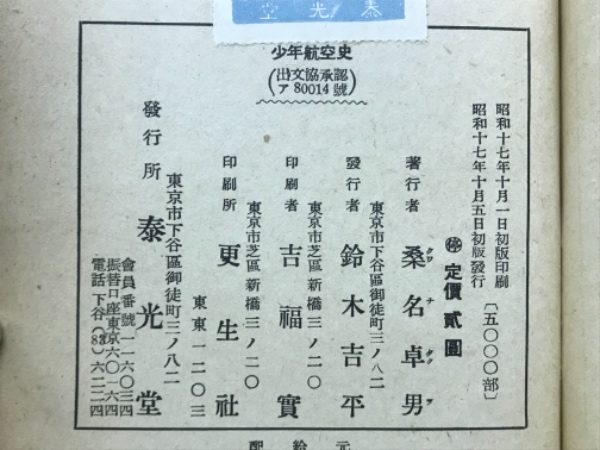 泰光堂
少年航空史
(出文協承認
ア80014號)
昭和十七年十月一日初版印刷
昭和十七年十月五日初版發行
〔五〇〇〇部〕
定價貳圓
著行者 桑名卓男
クワ ナ タク ヲ
東京市下谷區御徒町三ノ八二
發行者 鈴木吉平
東京市芝區新橋三ノ二〇
印刷者 吉福實
東京市芝區新橋三ノ二〇
印刷所 更生社
東東一二〇三
東京市下谷區御徒町三ノ八二
發行所 泰光堂
會員番號一一六〇三四
振替口座東京六〇一六四
電話下谷(83)六二二四
元 給 配